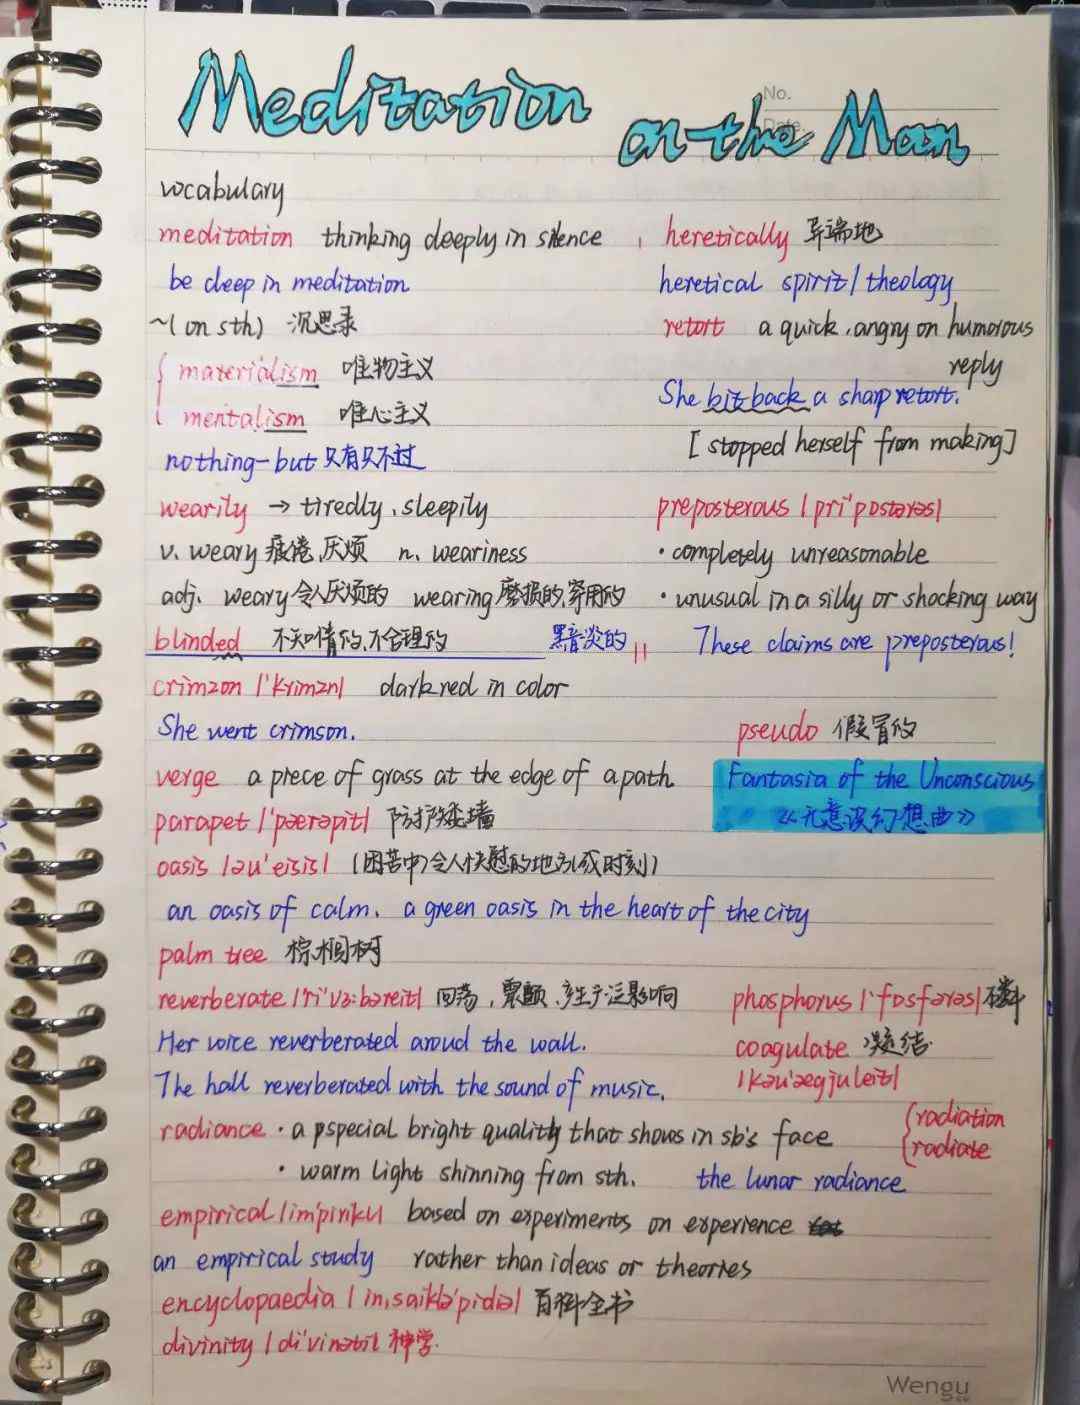 Meditation on the Moon
No.
Date.
vocabulary
meditation thinking deeply in silence
be deep in meditation
~(on sth) 沉思录
materialism 唯物主义
mentalism 唯心主义
nothing-but 只有只不过
wearily → tiredly, sleepily
v. weary 疲倦,厌烦 n. weariness
adj. weary 令人厌烦的 wearing 磨损的,穿用的
blinded 不知情的,不合理的 黑暗淡的
crimzon |'krimzn| dark red in color
She went crimson.
verge a piece of grass at the edge of a path
parapet |'pærəpit| 防护矮墙
oasis |əu'eisis| (困苦中)令人快慰的地方(或时刻)
an oasis of calm. a green oasis in the heart of the city
palm tree 棕榈树
reverberate |ri'vɜ:bəreit| 回荡,震颤,产生广泛影响
Her voice reverberated aroud the wall.
The hall reverberated with the sound of music.
radiance · a pspecial bright quality that shows in sb's face
· warm light shinning from sth. the lunar radiance
empirical |im'pirikl| based on experiments on experience
an empirical study rather than ideas or theories
encyclopaedia |in,saiklə'pidiə| 百科全书
divinity |di'vinəti| 神学.
heretically 异端地
heretical spirit/theology
retort a quick, angry on humorous
reply
She bit back a sharp retort.
[stopped herself from making]
preposterous |pri'pɒstərəs|
· completely unreasonable
· unusual in a silly or shocking way
These claims are preposterous!
pseudo 假冒的
Fantasia of the Unconscious
《无意识幻想曲》
phosphorus |'fɒsfərəs| 磷
coagulate 凝结
|kəu'ægjuleit|
radiation
radiate
Wengu